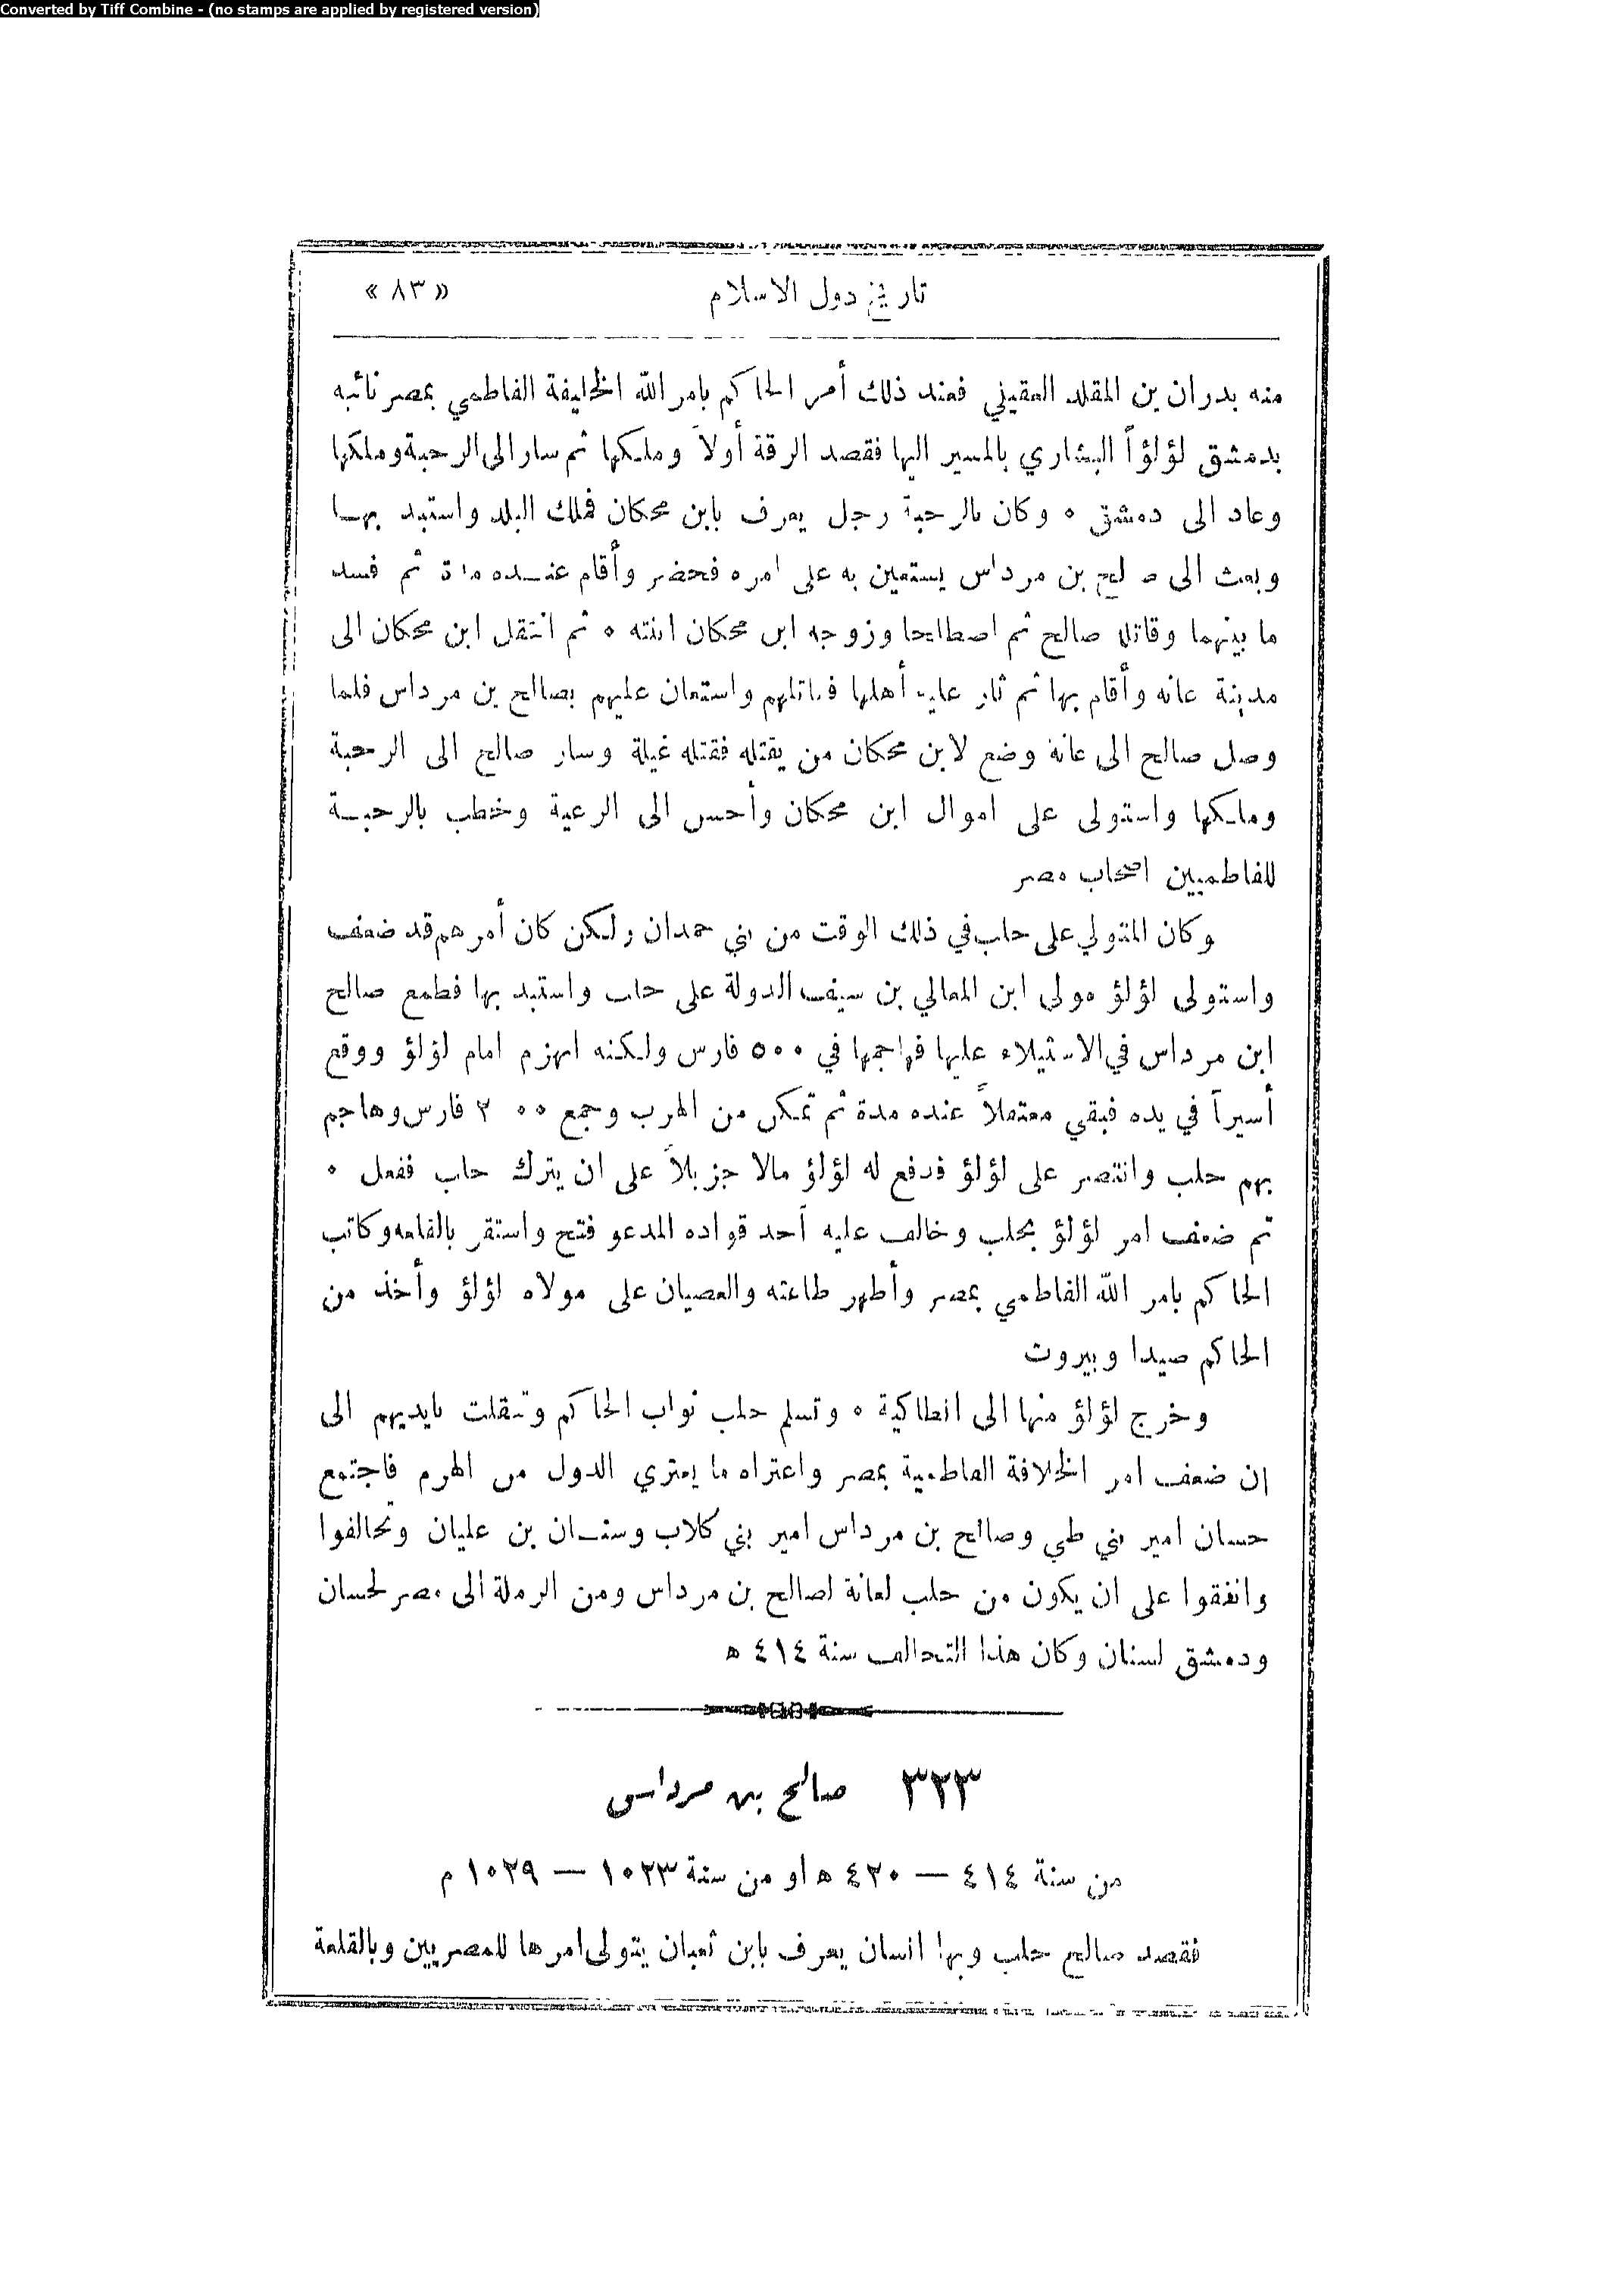 Converted by Tiff Combine - (no stamps are applied by registered version)
تاريخ دول الاسلام « ٨٣ »
منه بدران بن المقلد العقيلي فعند ذلك أمر الحاكم بامر الله الخليفة الفاطمي بمصر نائبه
بدمشق لؤلؤاً البشاري بالمسير اليها فقصد الرقة أولاً وملكها ثم سار الى الرحبة وملكها
وعاد الى دمشق ٠ وكان بالرحبة رجل يعرف بابن محكان فملك البلد واستبد بهـا
وبعث الى صالح بن مرداس يستعين به على امره فحضر وأقام عنـده مدة ثم فسد
ما بينهما وقاتله صالح ثم اصطلحا وزوجه ابن محكان ابنته ٠ ثم انتقل ابن محكان الى
مدينة عانه وأقام بها ثم ثار عليه أهلها فقاتلهم واستعان عليهم بصالح بن مرداس فلما
وصل صالح الى عانة وضع لابن محكان من يقتله فقتله غيلة وسار صالح الى الرحبة
وملكها واستولى على اموال ابن محكان وأحسن الى الرعية وخطب بالرحبـة
للفاطميين اصحاب مصر
وكان المتولي على حلب في ذلك الوقت من بني حمدان ولكن كان أمرهم قد ضعف
واستولى لؤلؤ مولى ابن المعالي بن سيف الدولة على حلب واستبد بها فطمع صالح
ابن مرداس في الاستيلاء عليها فهاجمها في ٥٠٠ فارس ولكنه انهزم امام لؤلؤ ووقع
أسيراً في يده فبقي معتقلاً عنده مدة ثم تمكن من الهرب وجمع ٢٠٠٠ فارس وهاجم
بهم حلب وانتصر على لؤلؤ فدفع له لؤلؤ مالا جزيلاً على ان يترك حلب ففعل ٠
ثم ضعف امر لؤلؤ بحلب وخالف عليه أحد قواده المدعو فتح واستقر بالقلعه وكاتب
الحاكم بامر الله الفاطمي بمصر وأظهر طاعته والعصيان على مولاه لؤلؤ وأخذ من
الحاكم صيدا وبيروت
وخرج لؤلؤ منها الى انطاكية ٠ وتسلم حلب نواب الحاكم وتنقلت بايديهم الى
ان ضعف امر الخلافة الفاطمية بمصر واعتراه ما يعتري الدول من الهرم فاجتمع
حسان امير بني طي وصالح بن مرداس امير بني كلاب وسنـان بن عليان وتحالفوا
واتفقوا على ان يكون من حلب لعانة لصالح بن مرداس ومن الرملة الى مصر لحسان
ودمشق لسنان وكان هذا التحالف سنة ٤١٤ ه
٣٢٣ صالح بن مرداس
من سنة ٤١٤ — ٤٢٠ ه او من سنة ١٠٢٣ — ١٠٢٩ م
فقصد صالح حلب وبها انسان يعرف بابن ثعبان يتولى امرها للمصريين وبالقلعة